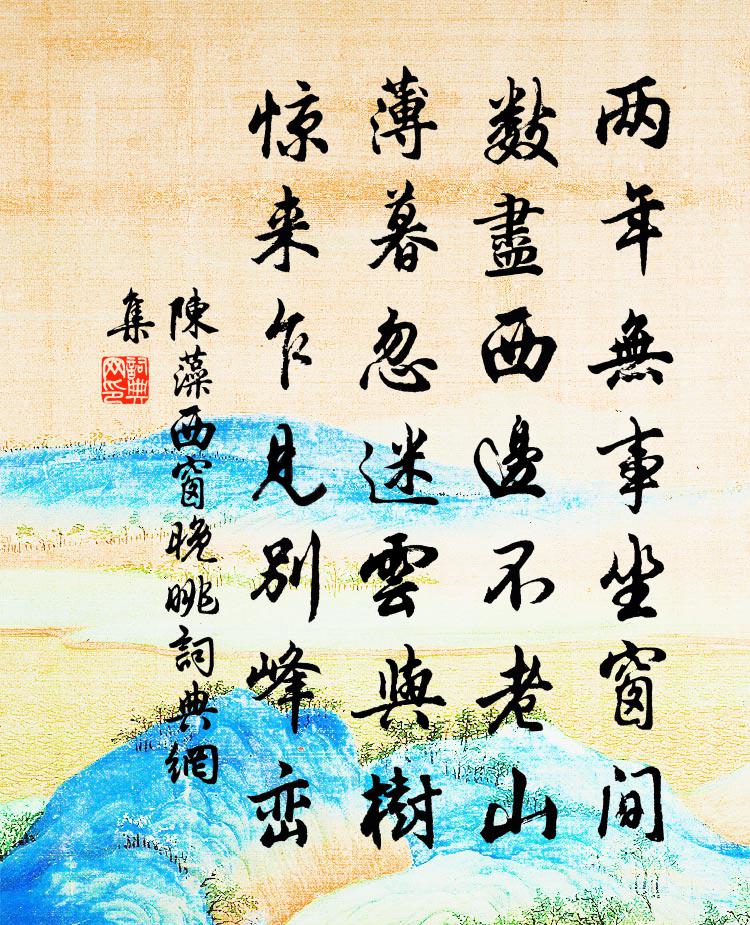 两年無事坐窗间
数盡西邊不老山
薄暮忽迷雲與樹
惊来乍見别峰峦
陳藻西窗晚眺詞典網
集
詞典
网印